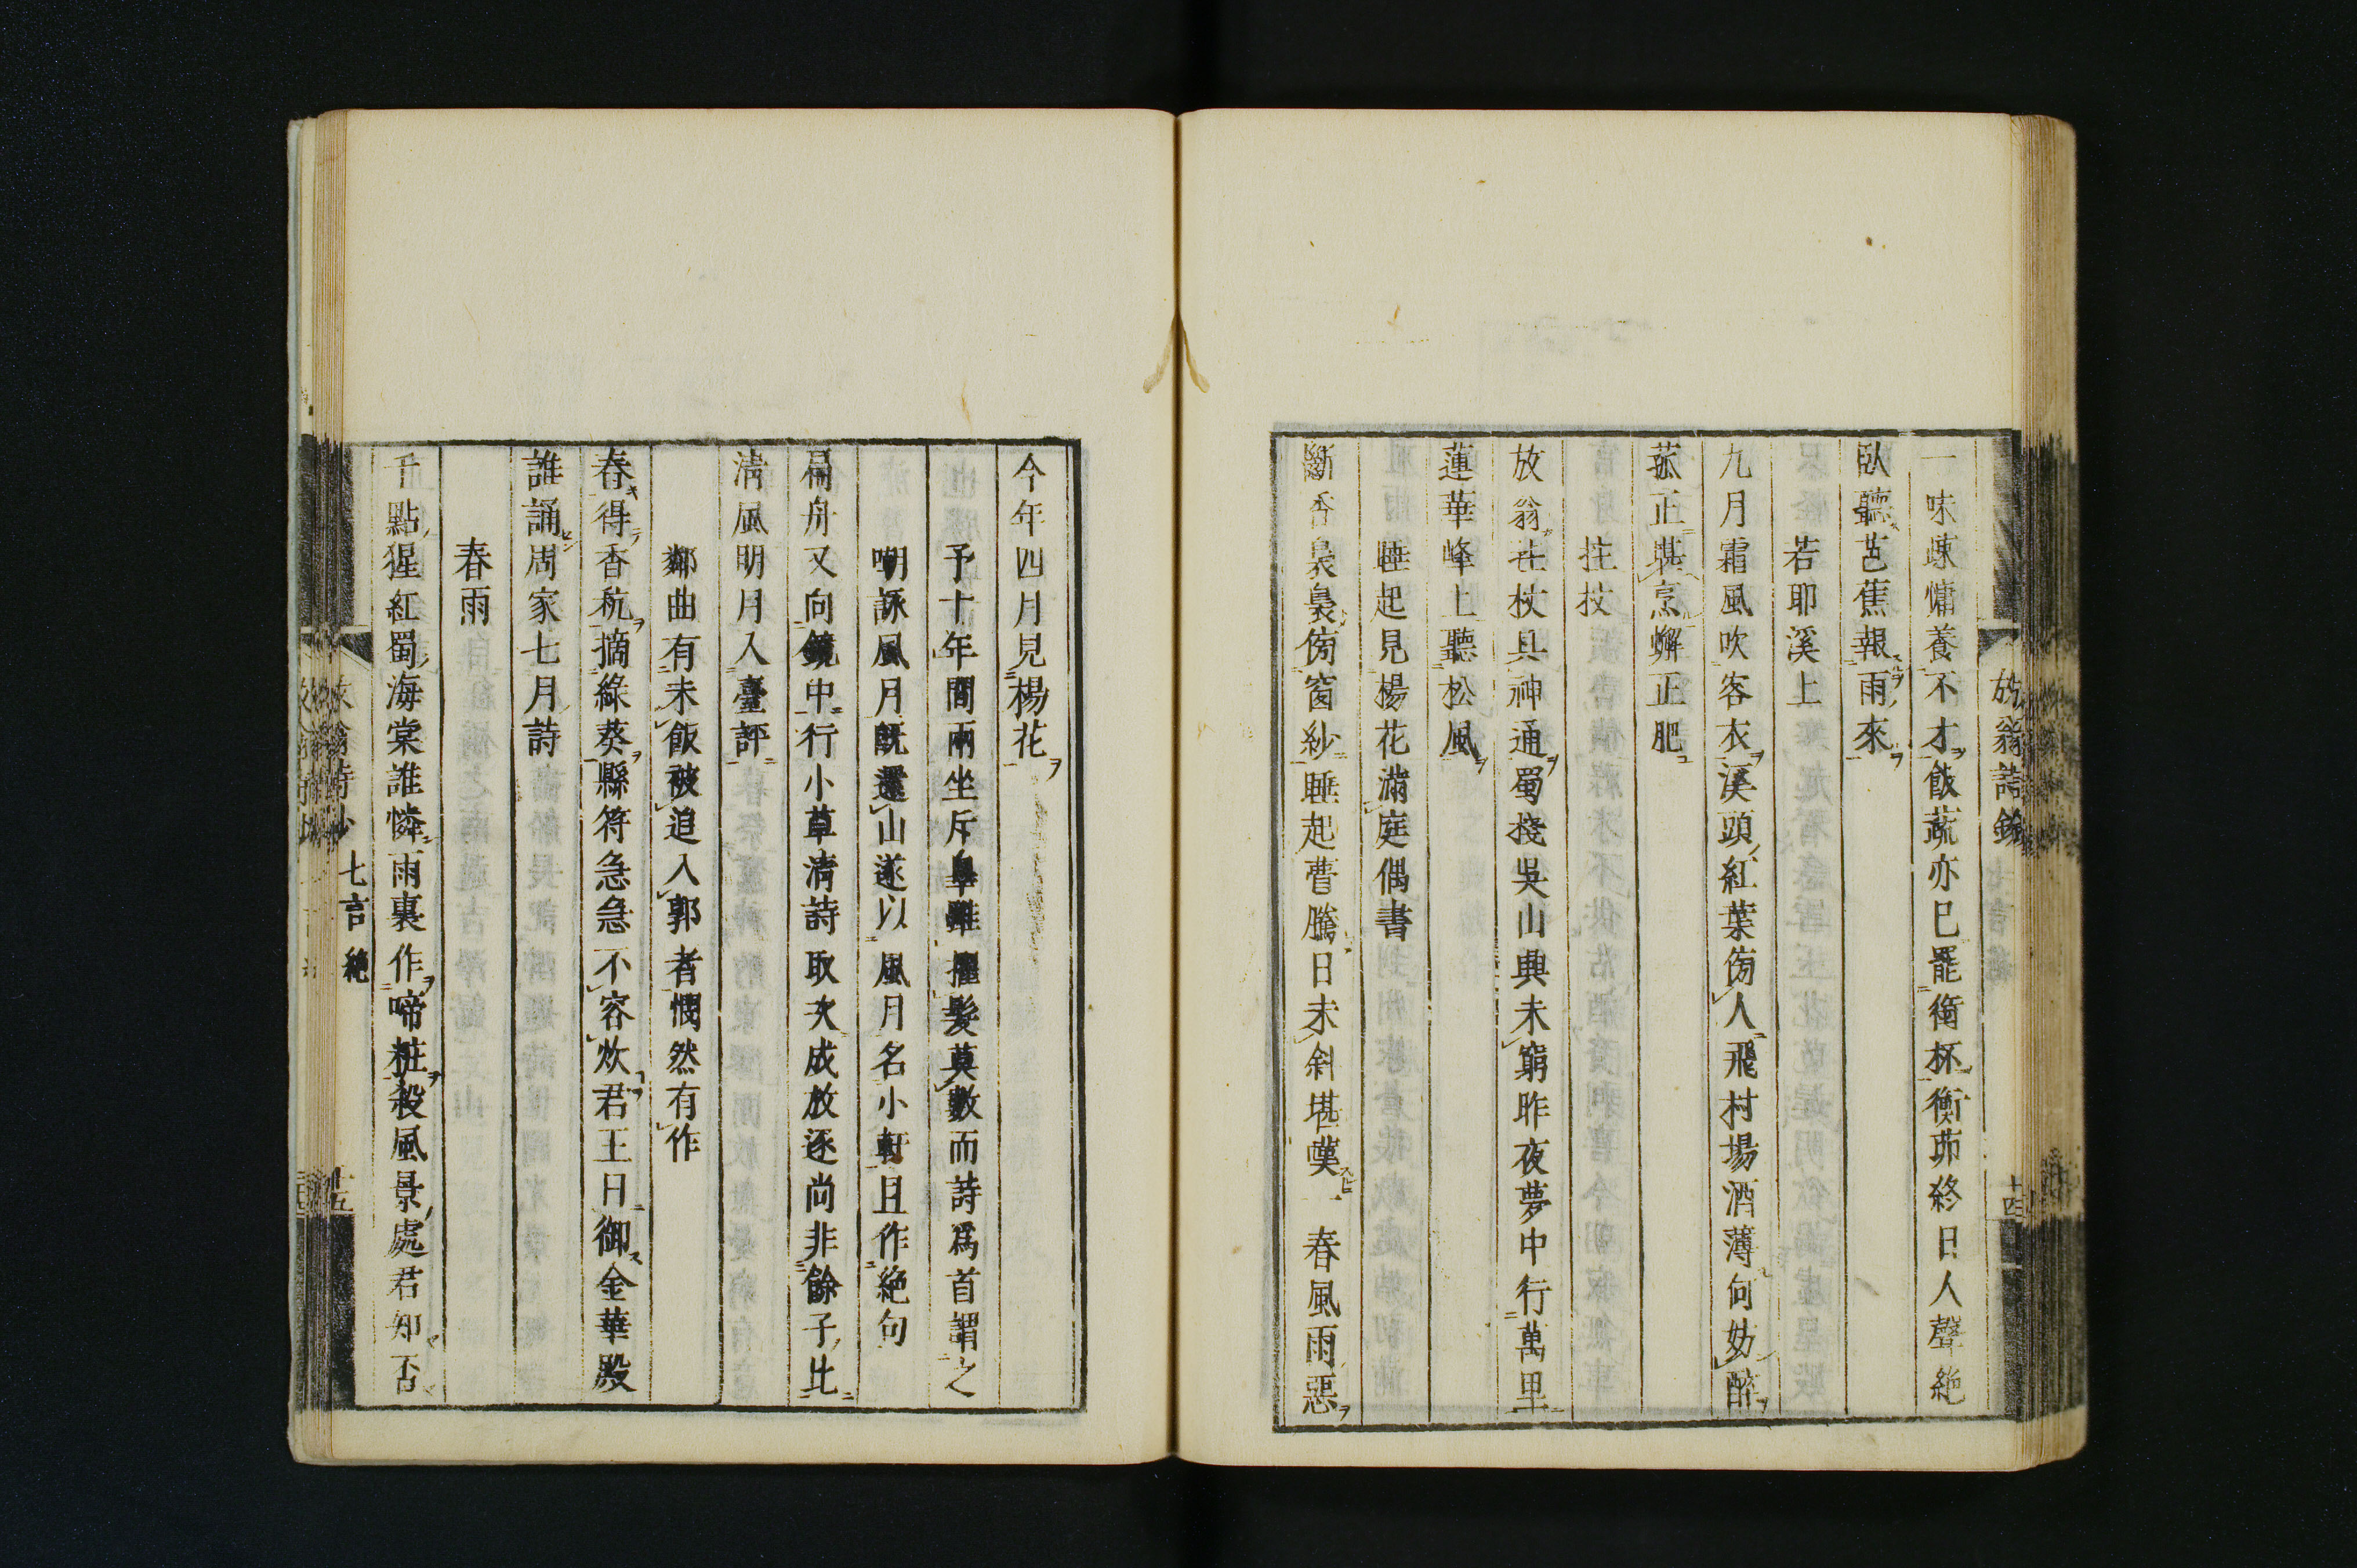 放翁詩鈔
十四
一味疎慵養不才飯蔬亦已罷銜杯衡茆終日人聲絕
臥聽芭蕉報雨來
若耶溪上
九月霜風吹客衣溪頭紅葉傍人飛村場酒薄何妨醉
菰正堪烹蠏正肥
拄杖
放翁拄杖具神通蜀棧吳山興未窮昨夜夢中行萬里
蓮華峰上聽松風
睡起見楊花滿庭偶書
斷香裊裊傍窗紗睡起瞢騰日未斜堪嘆一春風雨惡
今年四月見楊花
予十年間兩坐斥辠雖擢髮莫數而詩爲首謂之
嘲詠風月旣還山遂以風月名小軒且作絕句
扁舟又向鏡中行小草淸詩取次成放逐尚非餘子比
淸風明月入臺評
鄰曲有未飯被追入郭者憫然有作
春得香秔摘綠葵縣符急急不容炊君王日御金華殿
誰誦周家七月詩
春雨
千點猩紅蜀海棠誰憐雨裏作啼粧殺風景處君知否
放翁詩鈔
七言絕
十五